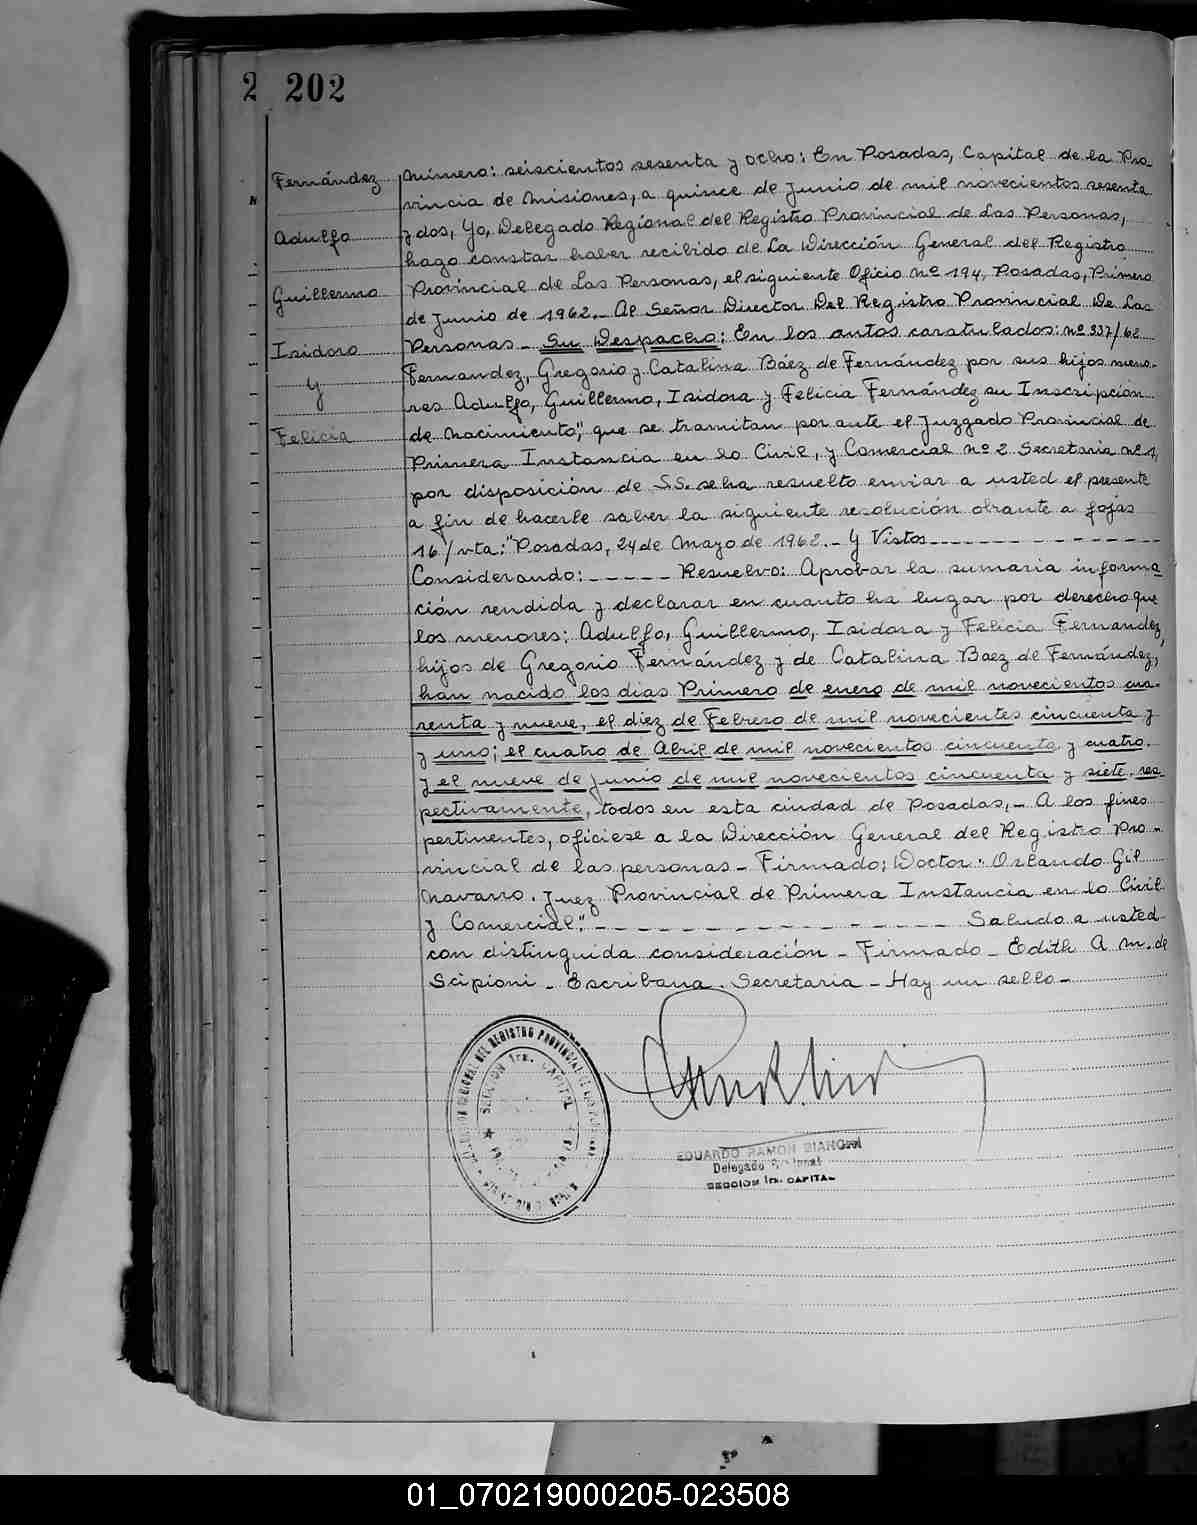 2 202
Fernández
Adulfo
Guillermo
Isidoro
y
Felicia
Número: seiscientos sesenta y ocho: En Posadas, Capital de la Pro-
vincia de Misiones, a quince de Junio de mil novecientos sesenta
y dos, Yo, Delegado Regional del Registro Provincial de Las Personas,
hago constar haber recibido de La Dirección General del Registro
Provincial de Las Personas, el siguiente Oficio nº 194, Posadas, Primero
de Junio de 1962.- Al Señor Director Del Registro Provincial De Las
Personas - Su Despacho: En los autos caratulados: nº 337/62
Fernandez, Gregorio y Catalina Báez de Fernández por sus hijos meno-
res Adulfo, Guillermo, Isidora y Felicia Fernández su Inscripción
de Nacimiento", que se tramitan por ante el Juzgado Provincial de
Primera Instancia en lo Civil, y Comercial nº 2 Secretaria nº 1,
por disposición de S.S. se ha resuelto enviar a usted el presente
a fin de hacerle saber la siguiente resolución obrante a fojas
16/vta: "Posadas, 24 de Mayo de 1962.- Y Vistos
Considerando: - - - - - Resuelvo: Aprobar la sumaria informa
ción rendida y declarar en cuanto ha lugar por derecho que
los menores: Adulfo, Guillermo, Isidora y Felicia Fernandez,
hijos de Gregorio Fernández y de Catalina Baez de Fernández,
han nacido los dias Primero de enero de mil novecientos cua-
renta y nueve, el diez de Febrero de mil novecientos cincuenta y
y uno; el cuatro de Abril de mil novecientos cincuenta y cuatro.
y el nueve de Junio de mil novecientos cincuenta y siete. res-
pectivamente, todos en esta ciudad de Posadas,- A los fines
pertinentes, ofíciese a la Dirección General del Registro Pro-
vincial de las personas - Firmado; Doctor. Orlando Gil
Navarro. Juez Provincial de Primera Instancia en lo Civil
y Comercial." - - - - - - - - - - - - Saludo a usted
con distinguida consideración - Firmado - Edith A M. de
Scipioni - Escribana. Secretaria - Hay un sello -
REGISTRO PROVINCIAL DE LAS
SECCION 1ra. CAPITAL
EDUARDO RAMON BIANCHI
Delegado
SECCION 1ra. CAPITAL
01_070219000205-023508